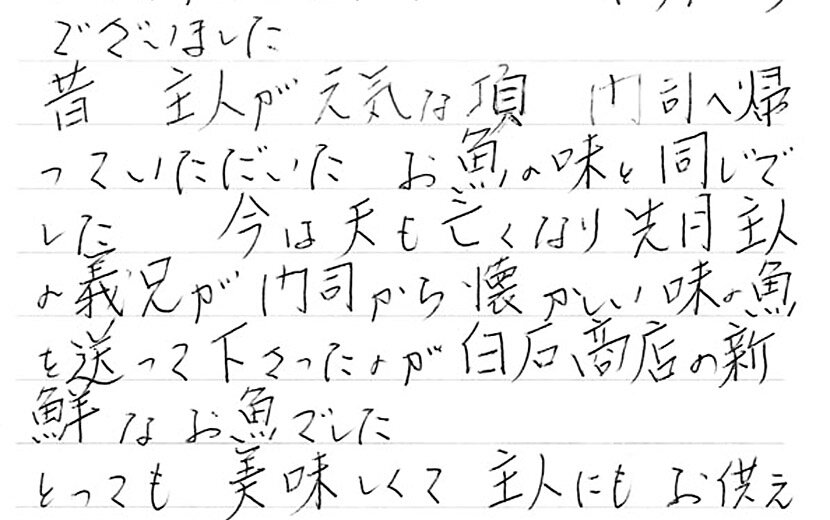 でございました
昔 主人が元気な頃 門司へ帰
っていただいた お魚の味と同じで
した 今は夫も亡くなり先月主人
の義兄が門司から懐かしい味の魚
を送って下さったのが白石商店の新
鮮なお魚でした
とっても美味しくて 主人にもお供え